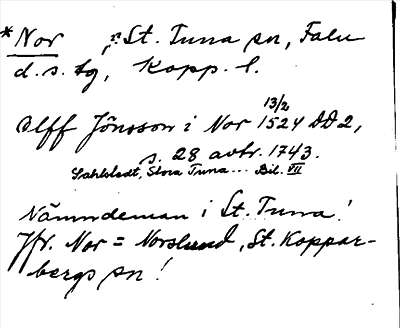 *Nor, St. Tuna sn, Falu
d.s. tg, Kopp. l.
13/2
Olff Jönsson i Nor 1524 DD 2,
s. 28 avtr. 1743.
Sahlstedt, Stora Tuna... Bil. VII
Nämndeman i St. Tuna!
Jfr. Nor = Norslund, St. Koppar-
bergs sn!